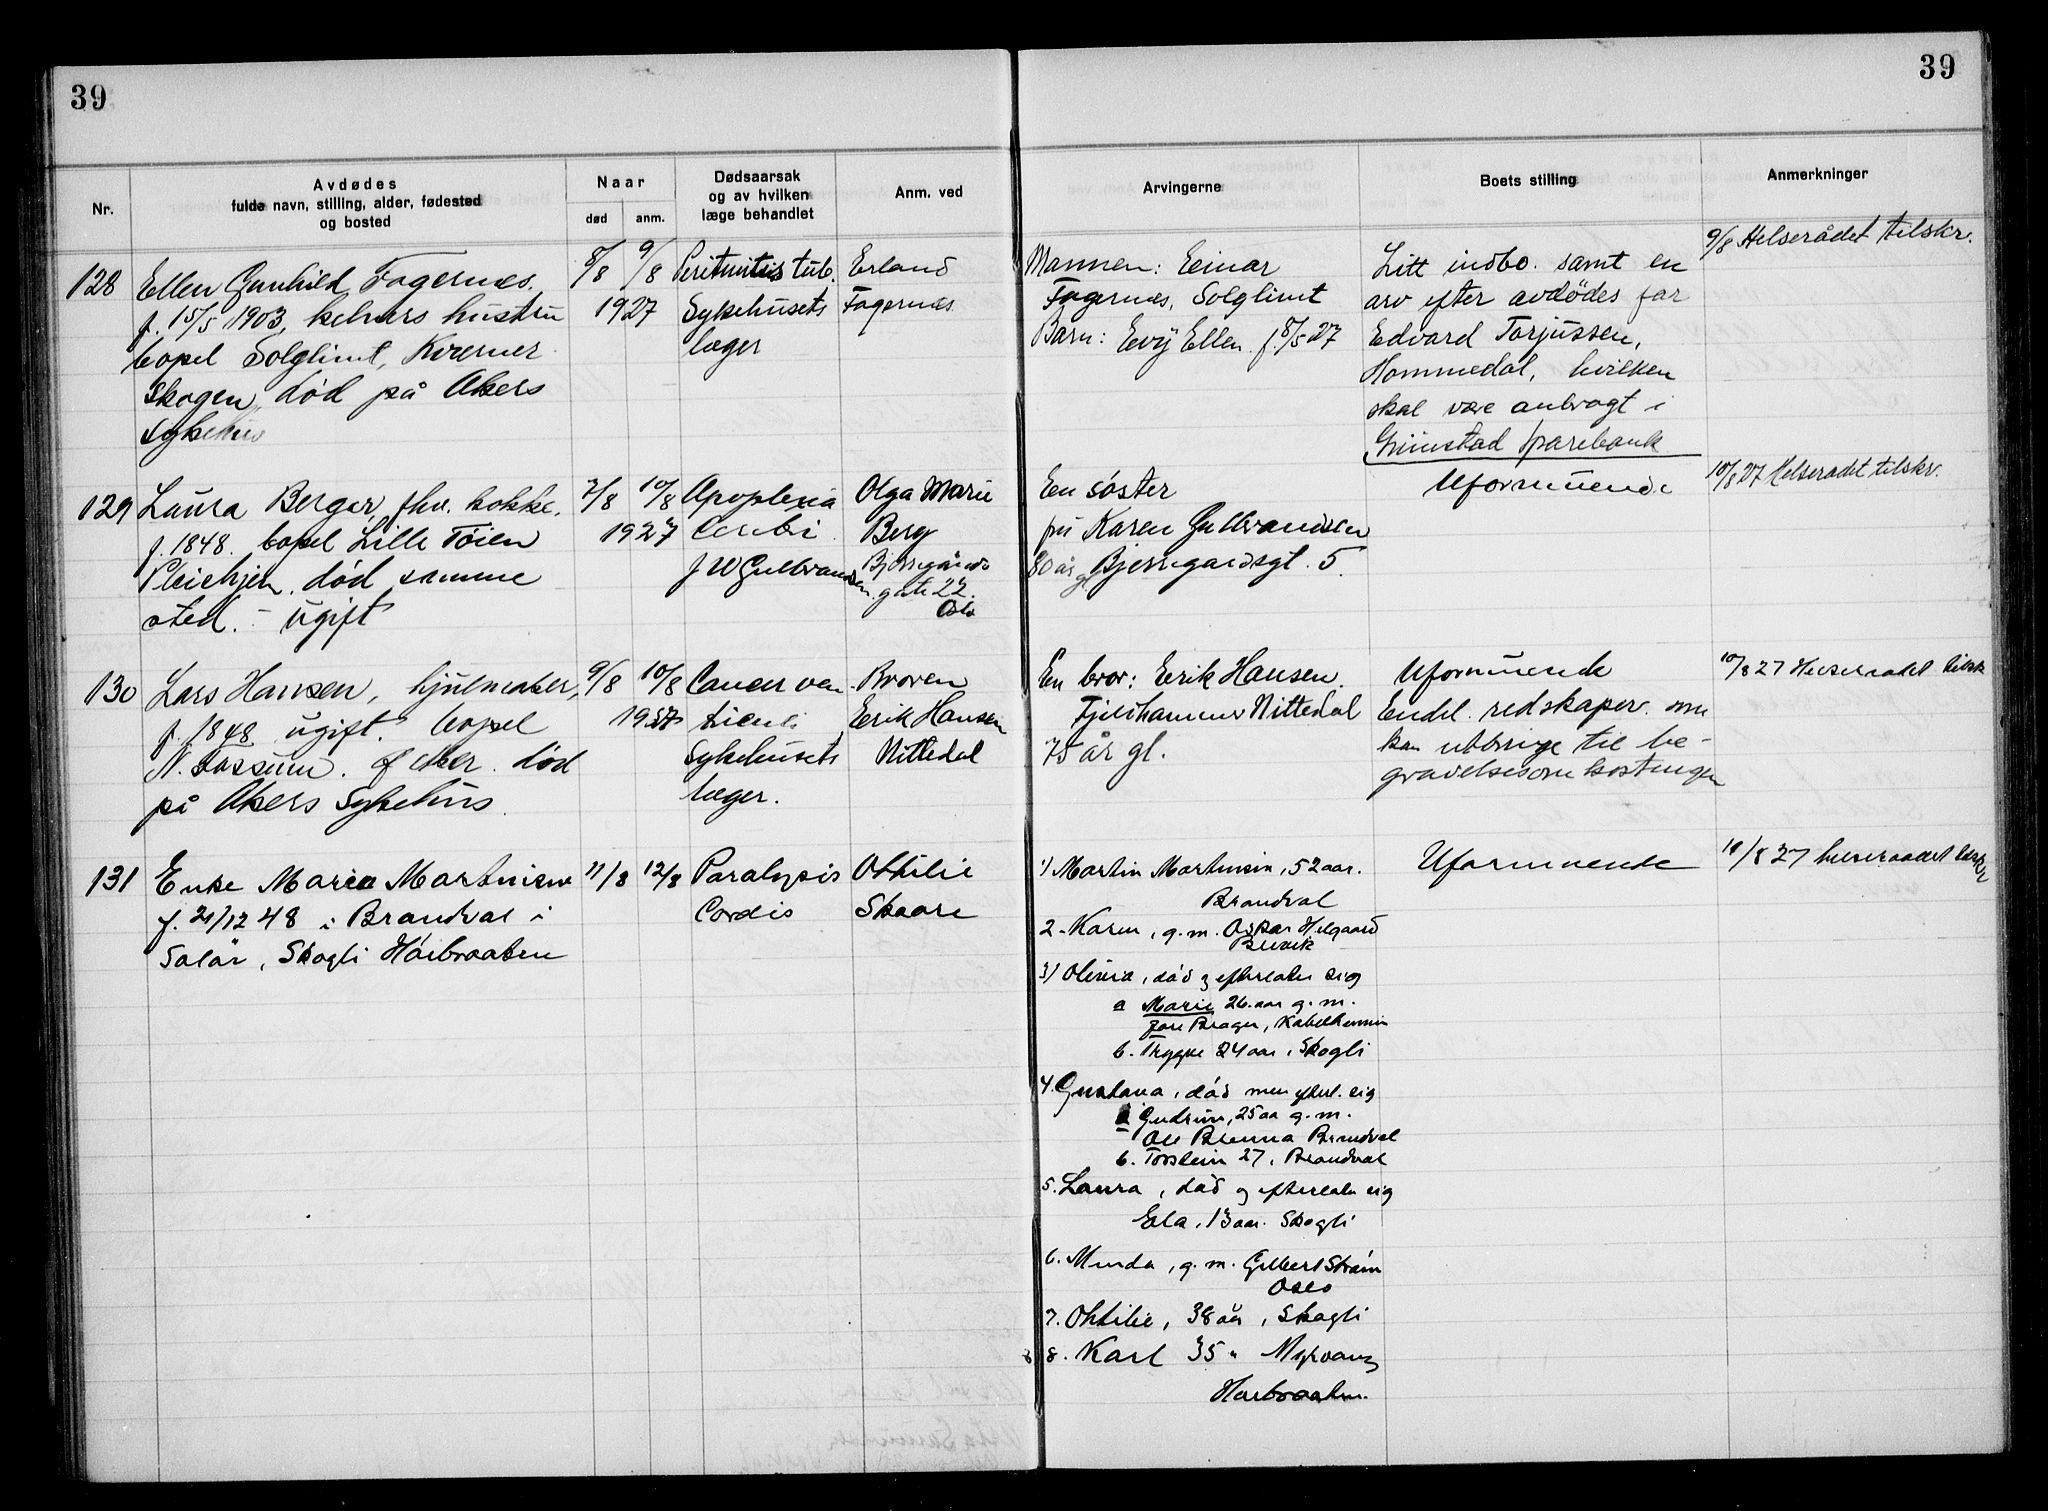 39
39
Nr.
Avdødes
fulde navn, stilling, alder, fødested
og bosted
Naar
død
anm.
Dødsaarsak
og av hvilken
læge behandlet
Anm. ved
Arvingerne
Boets stilling
Anmerkninger
128
Ellen Gunhild Fagernes.
f. 15/5 1903, kelners hustru
bopel Solglimt, Kværner
skogen, død på Akers
sykehus
8/8 9/8
1927
Peritonitis tub.
Sykehusets
læger
Erland
Fagernes
Mannen: Einar
Fagernes, Solglimt
Barn: Evy Ellen f. 8/5 27
Litt indbo. samt en
arv efter avdødes far
Edvard Torjussen,
Hommedal, hvilken
skal være anbragt i
Grimstad sparebank
9/8 Helserådet tilskr.
129
Laura Berger, fhv. kokke.
f. 1848. bopel Lille Töien
Pleiehjem. død samme
sted. - ugift
7/8 10/8
1927
Apoplexia
Cerebri
J W Gulbrandsen.
Olga Marie
Berg
Bjerregårds
gate 22.
Oslo
En søster
fru Karen Gulbrandsen
80 år gl Bjerregaardsgt. 5.
Uformuende
10/8 27 Helseradet tilskr.
130
Lars Hansen, hjulmaker,
f. 1848 ugift. bopel
N. Fossum. Ø Aker. død
på Akers Sykehus.
9/8 10/8
1927
Cancer ven
triculi
Sykehusets
læger.
Broren
Erik Hansen
Nittedal
En bror: Erik Hansen.
Fjeldhammer Nittedal
75 år gl.
Uformuende
Endel redskaper som
kan utbringe til be-
gravelsesomkostningen
10/8 27 Helseradet tilsk
131
Enke Maria Martinsen
f. 21/12 48 i Brandval i
Solör, Skogli Höibraaten
11/8 12/8
Paralysis
Cordis
Othilie
Skaare
1) Martin Martinsen, 52 aar.
Brandval
2 - Karen, g.m. Oskar Helgaard
Brevik
3) Olivia, død og efterlater sig
a Marie 26 aar g.m.
Brager,
b. Trygve 24 aar, Skogli
4. Gustava, död men efterl. sig
a Gudrun, 25 aa g.m.
Ole Brenna Brandval
b. Torstein 27, Brandval
5. Laura, död og efterlater sig
Ella, 13 aar. Skogli
6. Minda, g.m. Gilbert Ström
Oslo
7. Othilie, 38 år, Skogli
8. Karl 35 " Myrvang
Høibraaten.
Uformuende
/8 27 helseraadet tilskr